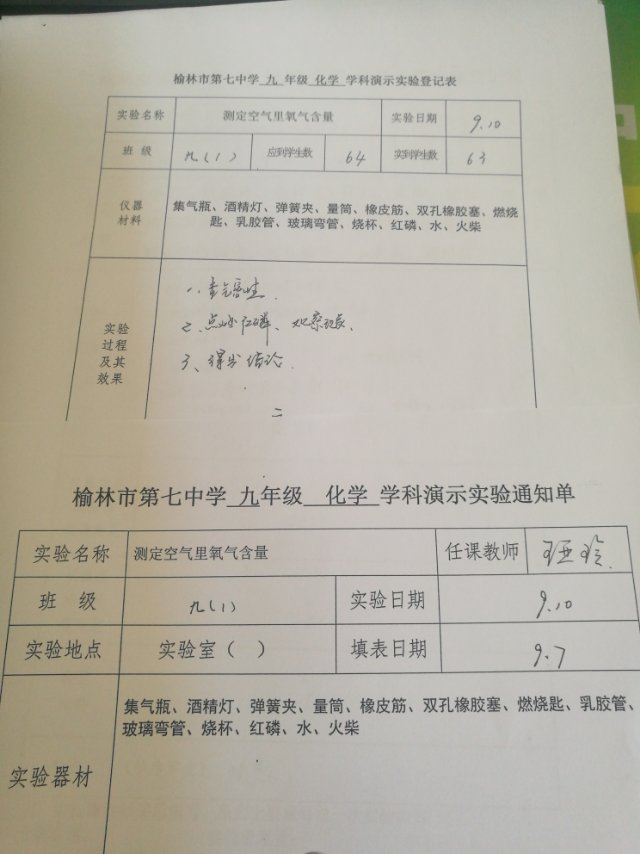 榆林市第七中学 九 年级 化学 学科演示实验登记表
实验名称 测定空气里氧气含量 实验日期 9.10
班 级 九(1) 应到学生数 64 实到学生数 63
仪器
材料
集气瓶、酒精灯、弹簧夹、量筒、橡皮筋、双孔橡胶塞、燃烧
匙、乳胶管、玻璃弯管、烧杯、红磷、水、火柴
实验
过程
及其
效果
一、查气密性.
2、点燃红磷、观察现象、
3、得出结论.
二
榆林市第七中学 九年级 化学 学科演示实验通知单
实验名称 测定空气里氧气含量 任课教师
班 级 九(1) 实验日期 9.10
实验地点 实验室( ) 填表日期 9.7
实验器材
集气瓶、酒精灯、弹簧夹、量筒、橡皮筋、双孔橡胶塞、燃烧匙、乳胶管、
玻璃弯管、烧杯、红磷、水、火柴